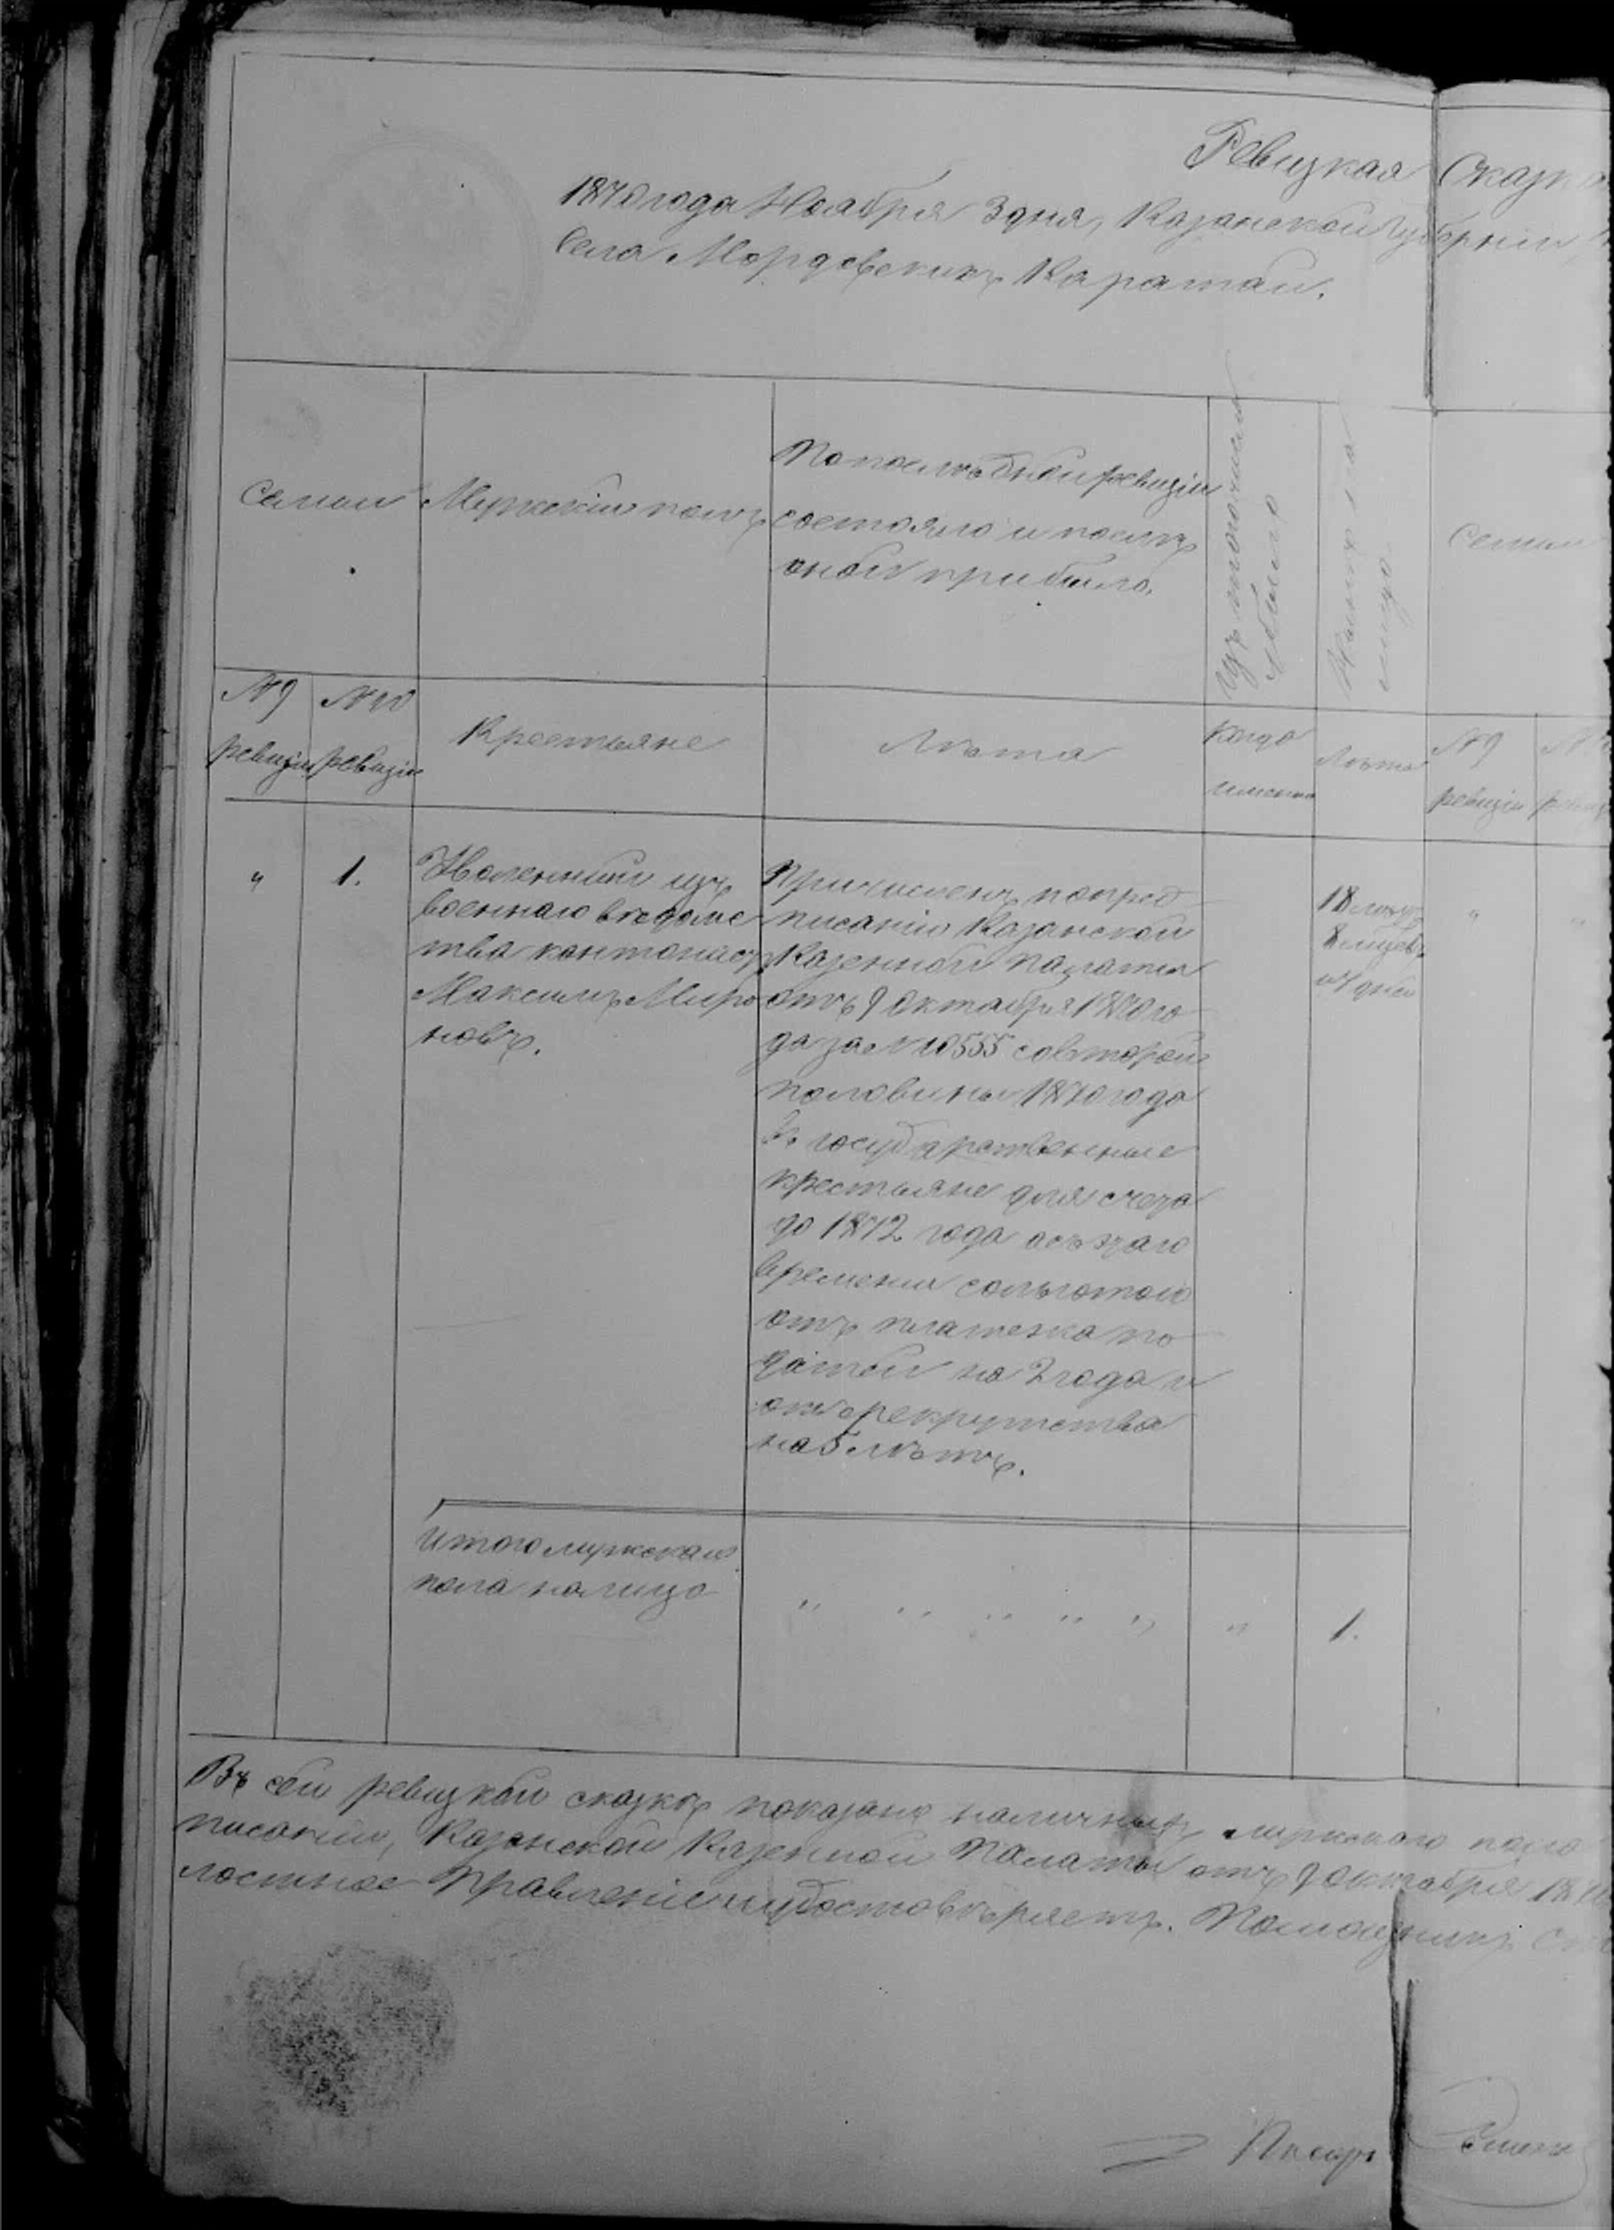 Ревизкая Сказка
1870 года Ноября 3 дня, Казанской Губернии,
Села Мордовских Каратай.
Семьи
Мужескій полъ
По послѣдней ревизіи
состояло и послѣ
оной прибыло.
Изъ того числа
выбыло
Налицо
Семьи
№ 9
ревизіи
№ 10
ревизіи
Крестьяне
Лѣта
Когда
именно
Лѣта
№ 9
ревизіи
"
1.
Уволенный изъ
военнаго вѣдомс
тва кантонистъ
Максимъ Миро
новъ.
Причисленъ по пред
писанію Казанской
Казенной Палаты
отъ 9 Октября 1870 го
да за № 10555 со второй
половины 1870 года
въ государственные
крестьяне для счета
до 1872 года а съ этаго
времени со льготою
отъ платежа по
датей на 2 года и
отъ рекрутства
на 5 лѣтъ.
18 лѣтъ
8 мѣсяц.
дней
"
Итого мужскаго
пола налицо
" " " " " "
1.
Въ сей ревизкой сказкѣ показано наличныхъ мужскаго пола
писанію, Казанской Казенной Палаты отъ 9 Октября 1870
лостное Правленіе и удостовѣряетъ. Помощникъ
Писарь